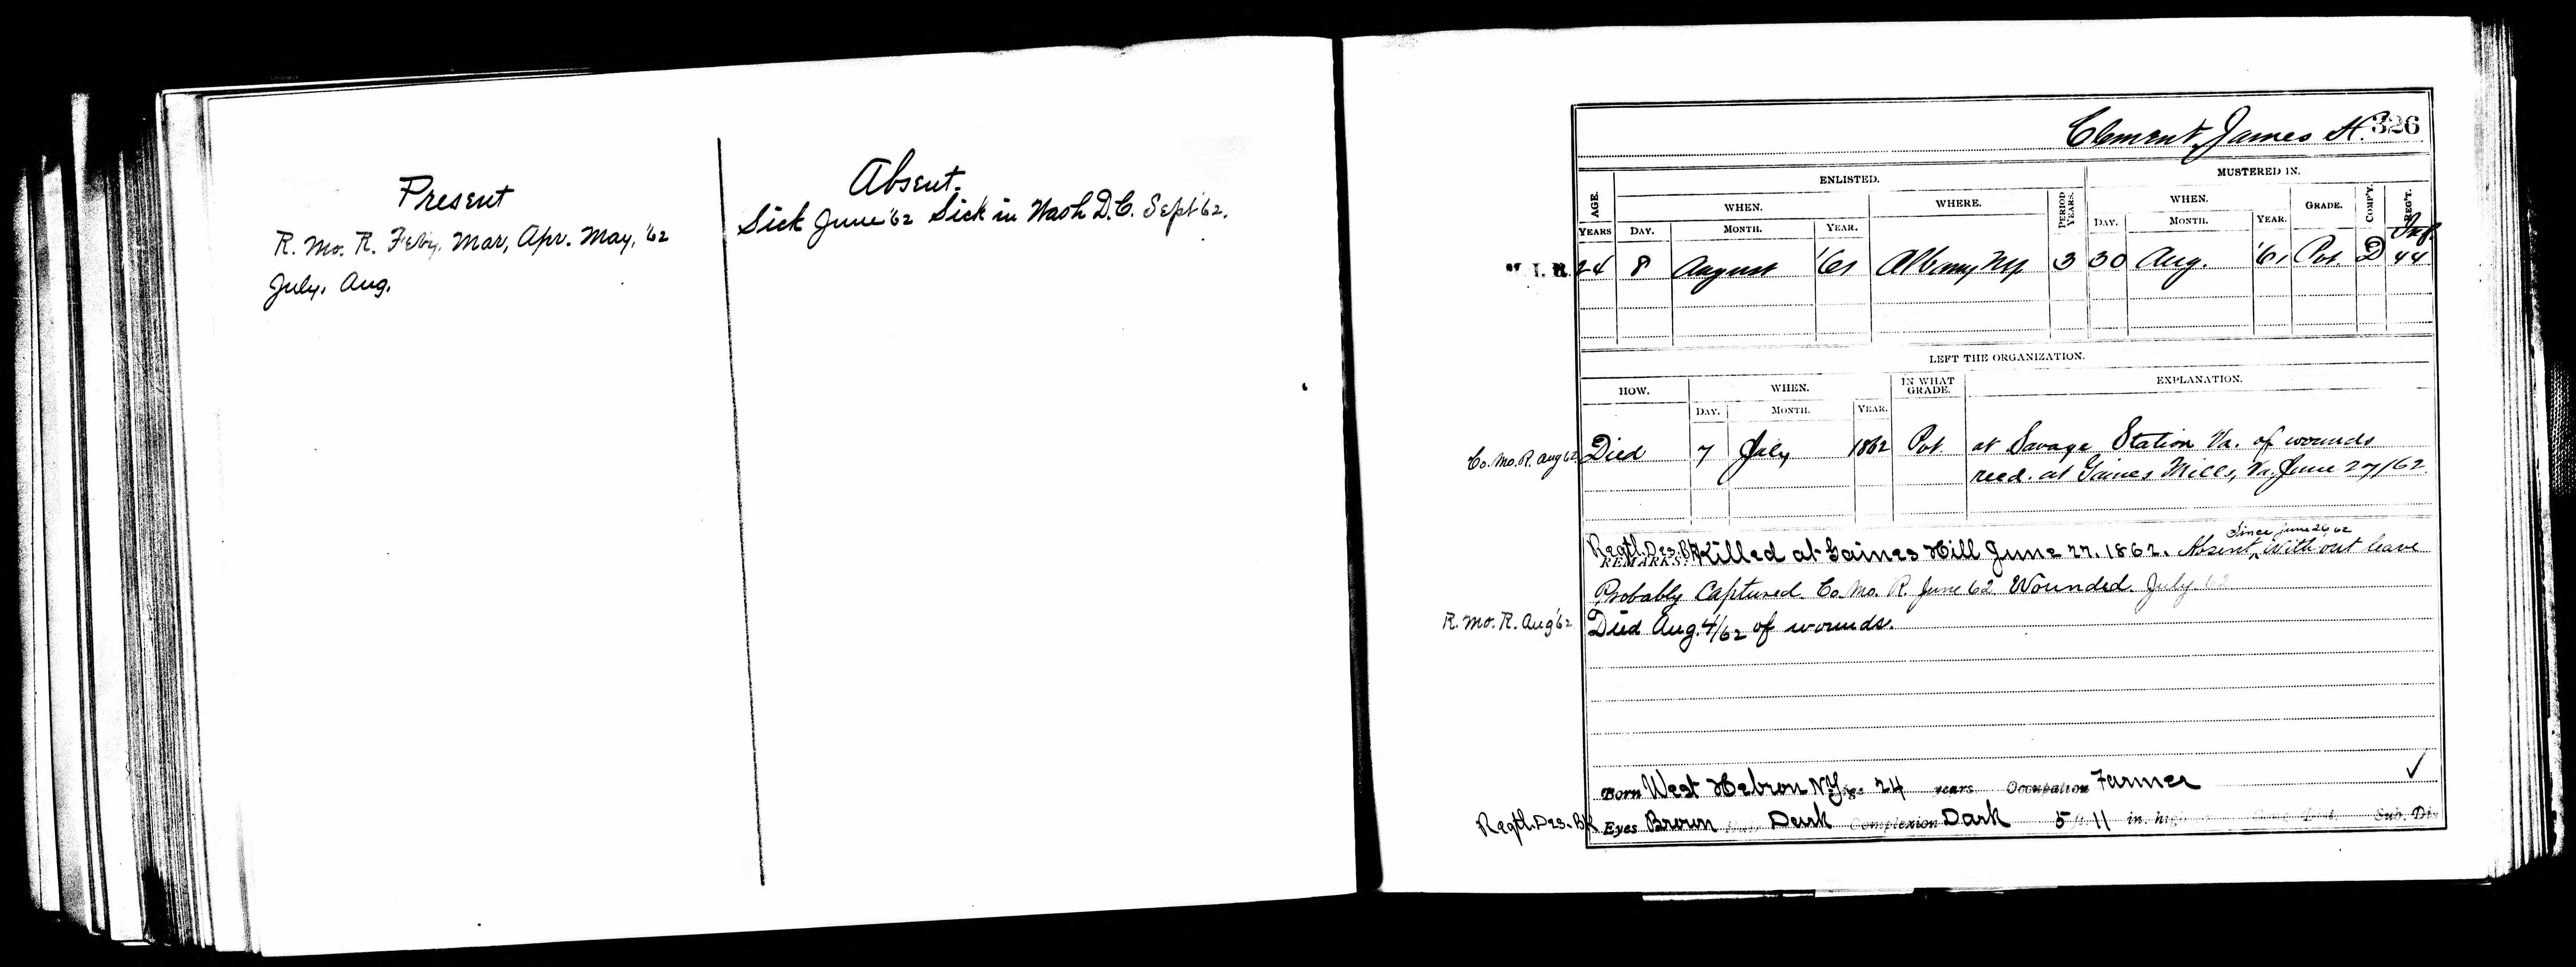 Present
R. Mo. R. Feby. Mar, Apr. May, '62
July. Aug.
Absent.
Sick June '62 Sick in Wash D.C. Sept '62.
Clement, James H. 326
ENLISTED. MUSTERED IN.
AGE. WHEN. WHERE. PERIOD YEARS. WHEN. GRADE. COMP'Y. REG'T.
YEARS DAY. MONTH. YEAR. DAY. MONTH. YEAR.
Inf.
24 8 August '61 Albany NY 3 30 Aug. '61 Pvt. D 44
LEFT THE ORGANIZATION.
HOW. WHEN. IN WHAT GRADE. EXPLANATION.
DAY. MONTH. YEAR.
Co. Mo. R. Aug 62 Died 7 July 1862 Pvt. at Savage Station Va. of wounds
recd. at Gaines Mills, Va. June 27/62
Since June 26, 62
Regtl. Des. Bk REMARKS: Killed at Gaines Mill June 27. 1862. Absent ^ without leave
Probably Captured. Co. Mo. R. June 62 Wounded. July 62
R. Mo. R. Aug '62 Died Aug. 4/62 of wounds.
Born West Hebron N.Y. Age 24 years Occupation Farmer
Regtl. Des. Bk Eyes Brown Hair Dark Complexion Dark 5 ft 11 in. high Sub. Dis